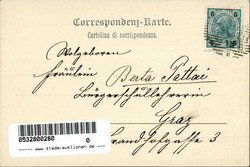 Correspondenz-Karte.
Cartolina di corrispondenza.
Wolgeboren
Fräulein Berta Pattai
Bürgerschullehrerin
Graz
3
0532800280 0
www.slada-auktionen.de